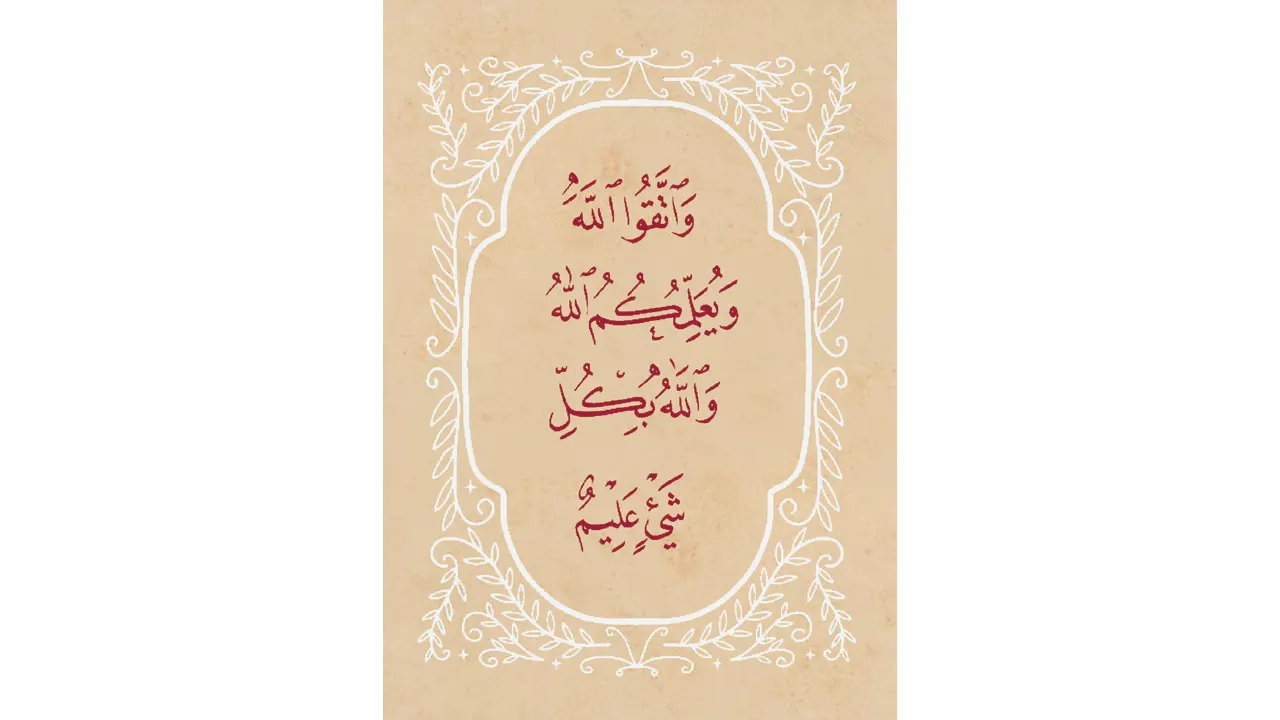 وَٱتَّقُوا ٱللَّهَ ۖ
وَيُعَلِّمُكُمُ ٱللَّهُ
وَٱللَّهُ بِكُلِّ
شَيْءٍ عَلِيمٌ